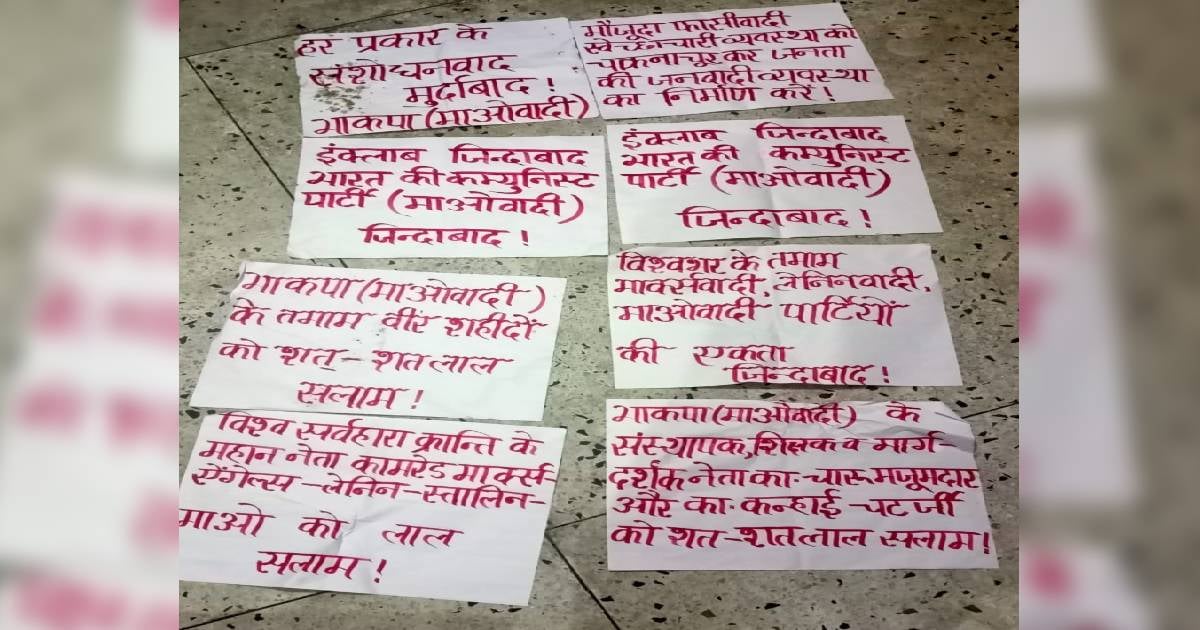 हर प्रकार के
संशोधनवाद
मुर्दाबाद !
भाकपा (माओवादी)
मौजूदा फासीवादी
स्वेच्छाचारी व्यवस्था को
चकनाचूर कर जनता
की जनवादी व्यवस्था
का निर्माण करें !
इंक्लाब जिन्दाबाद
भारत की कम्युनिस्ट
पार्टी (माओवादी)
जिन्दाबाद !
इंक्लाब जिन्दाबाद
भारत की कम्युनिस्ट
पार्टी (माओवादी)
जिन्दाबाद !
भाकपा (माओवादी)
के तमाम वीर शहीदों
को शत्-शत लाल
सलाम !
विश्वभर के तमाम
मार्क्सवादी, लेनिनवादी,
माओवादी पार्टियों
की एकता
जिन्दाबाद !
विश्व सर्वहारा क्रान्ति के
महान नेता कामरेड मार्क्स-
ऐंगेल्स-लेनिन-स्तालिन-
माओ को लाल
सलाम !
भाकपा (माओवादी) के
संस्थापक, शिक्षक व मार्ग-
दर्शक नेता का. चारू मजूमदार
और का. कन्हाई चटर्जी
को शत-शत लाल सलाम !